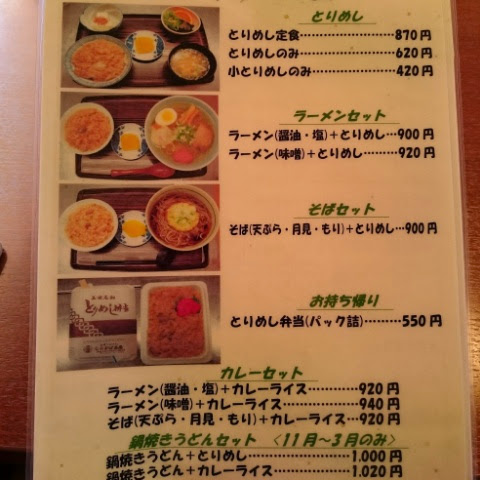 とりめし
とりめし定食……………………870円
とりめしのみ……………………620円
小とりめしのみ…………………420円
ラーメンセット
ラーメン(醤油・塩)+とりめし…900円
ラーメン(味噌)+とりめし………920円
そばセット
そば(天ぷら・月見・もり)+とりめし…900円
お持ち帰り
とりめし弁当(パック詰)………550円
とりめし弁当
カレーセット
ラーメン(醤油・塩)+カレーライス…………920円
ラーメン(味噌)+カレーライス………………940円
そば(天ぷら・月見・もり)+カレーライス…920円
鍋焼きうどんセット 〈11月~3月のみ〉
鍋焼きうどん+とりめし………………1.000円
鍋焼きうどん+カレーライス…………1.020円